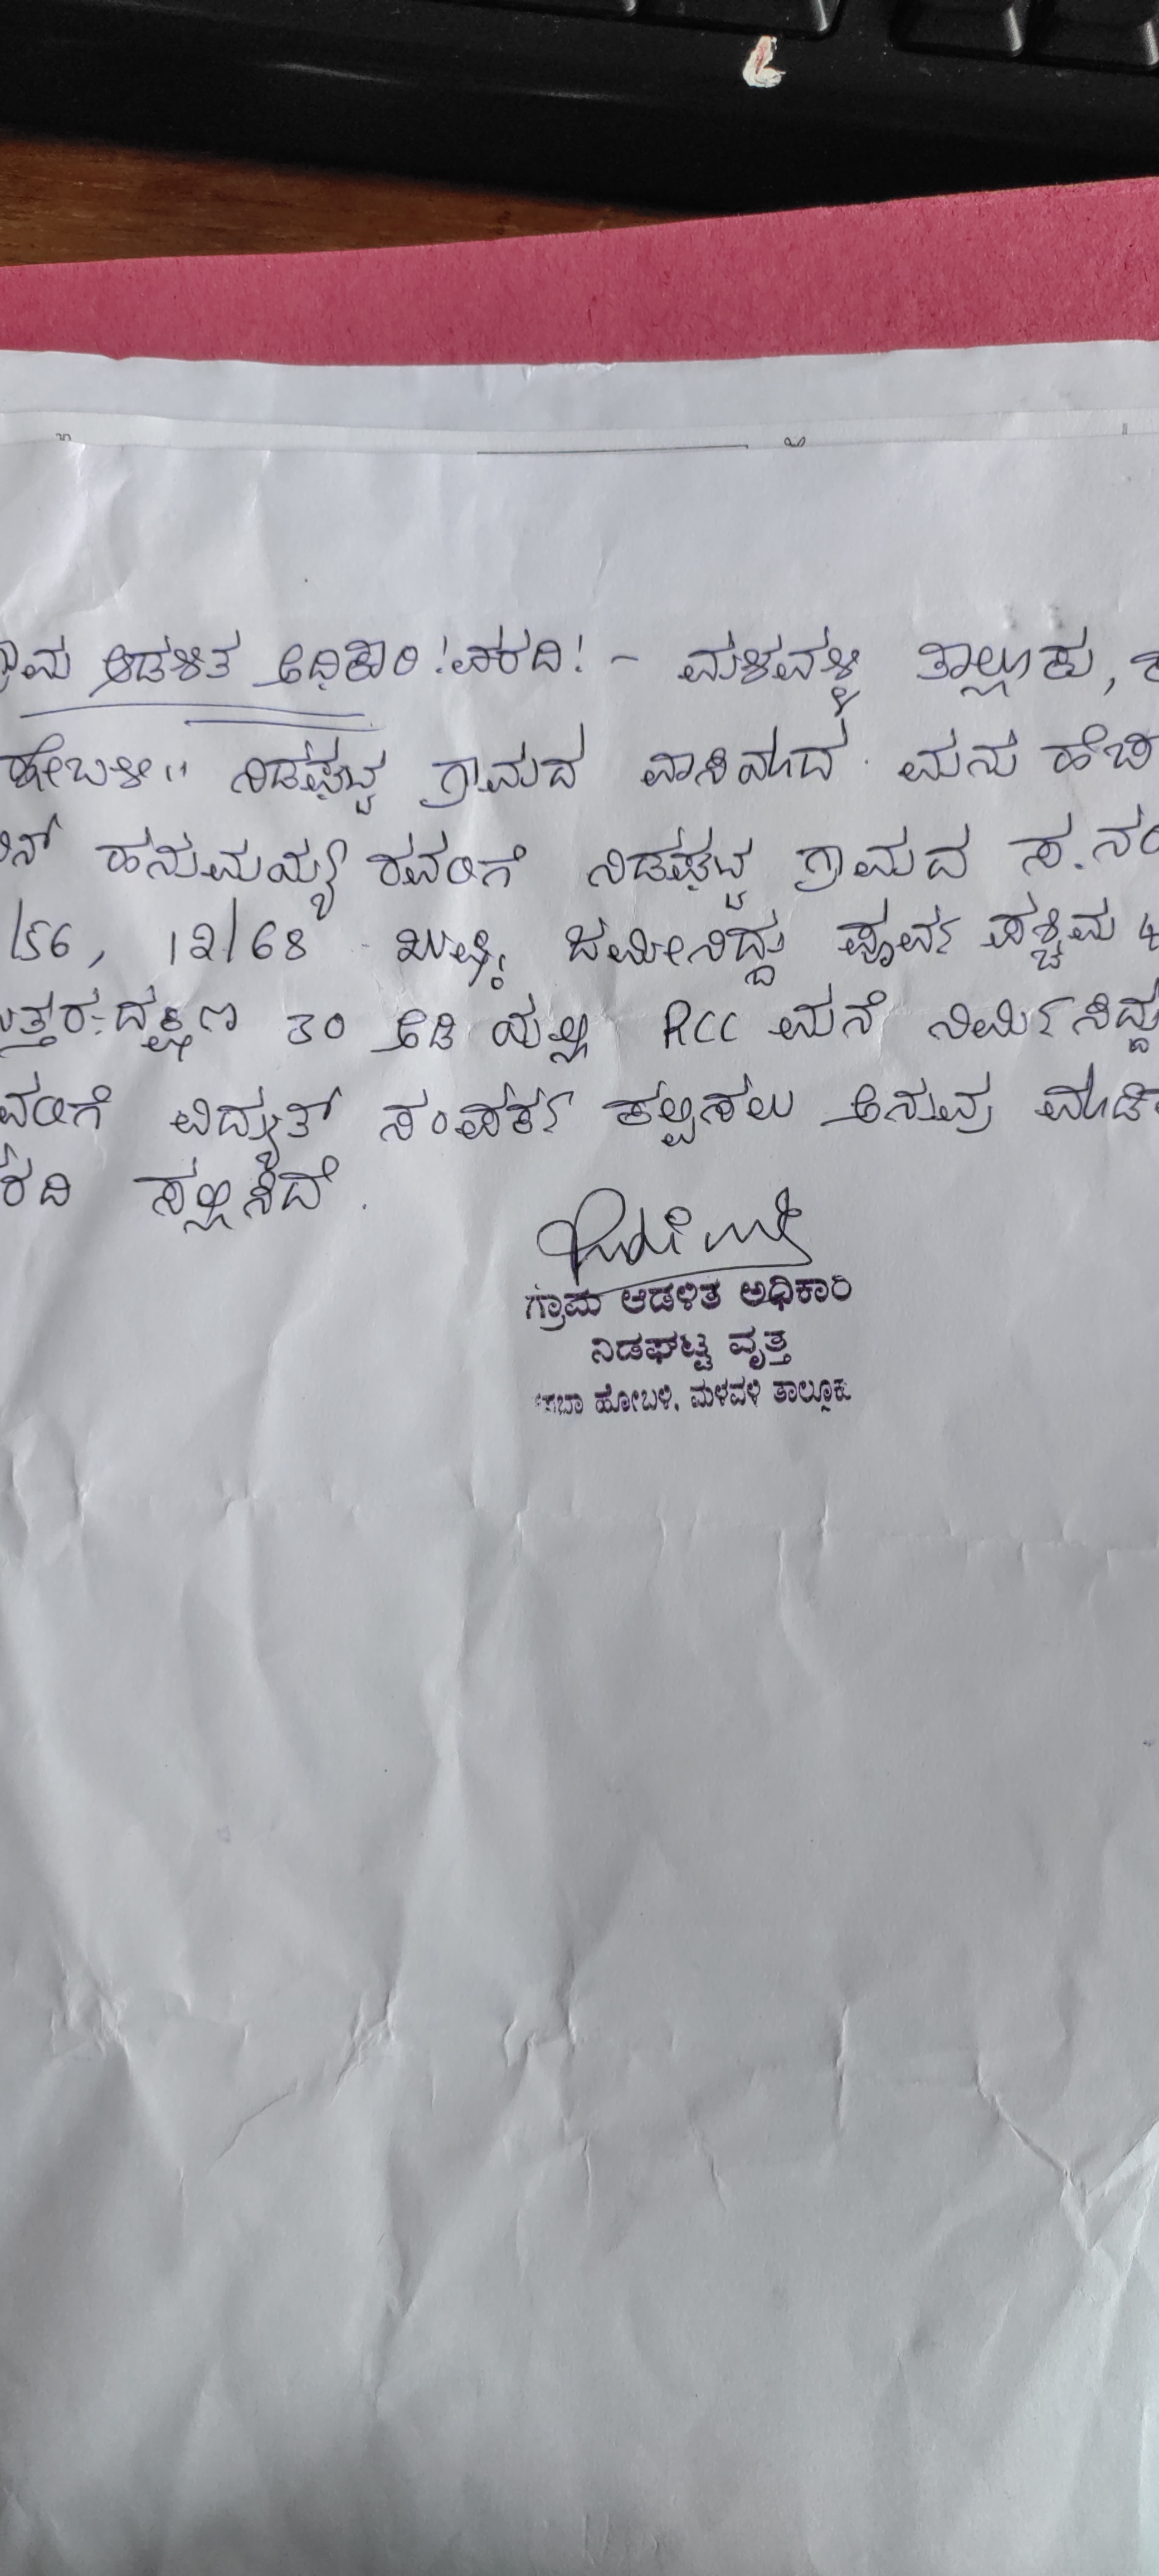 ಗ್ರಾಮ ಆಡಳಿತ ಅಧಿಕಾರಿ! ವರದಿ! - ಮಳವಳ್ಳಿ ತಾಲ್ಲೂಕು,
ಹೋಬಳಿ" ನಿಡಘಟ್ಟ ಗ್ರಾಮದ ವಾಸಿಯಾದ ಮನು ಹೆಚ್
ಬಿನ್ ಹನುಮಯ್ಯ ರವರಿಗೆ ನಿಡಘಟ್ಟ ಗ್ರಾಮದ ಸ.ನಂ
/56, 12/68 ಖುಷ್ಕಿ ಜಮೀನಿದ್ದು ಪೂರ್ವ ಪಶ್ಚಿಮ 4
ಉತ್ತರ-ದಕ್ಷಿಣ 30 ಅಡಿ ಯಲ್ಲಿ RCC ಮನೆ ನಿರ್ಮಿಸಿದ್ದು
ವರಿಗೆ ವಿದ್ಯುತ್ ಸಂಪರ್ಕ ಕಲ್ಪಿಸಲು ಅನುವು ಮಾಡಿ
ವರದಿ ಸಲ್ಲಿಸಿದೆ.
ಗ್ರಾಮ ಆಡಳಿತ ಅಧಿಕಾರಿ
ನಿಡಘಟ್ಟ ವೃತ್ತ
ಕಸಬಾ ಹೋಬಳಿ, ಮಳವಳ್ಳಿ ತಾಲ್ಲೂಕು